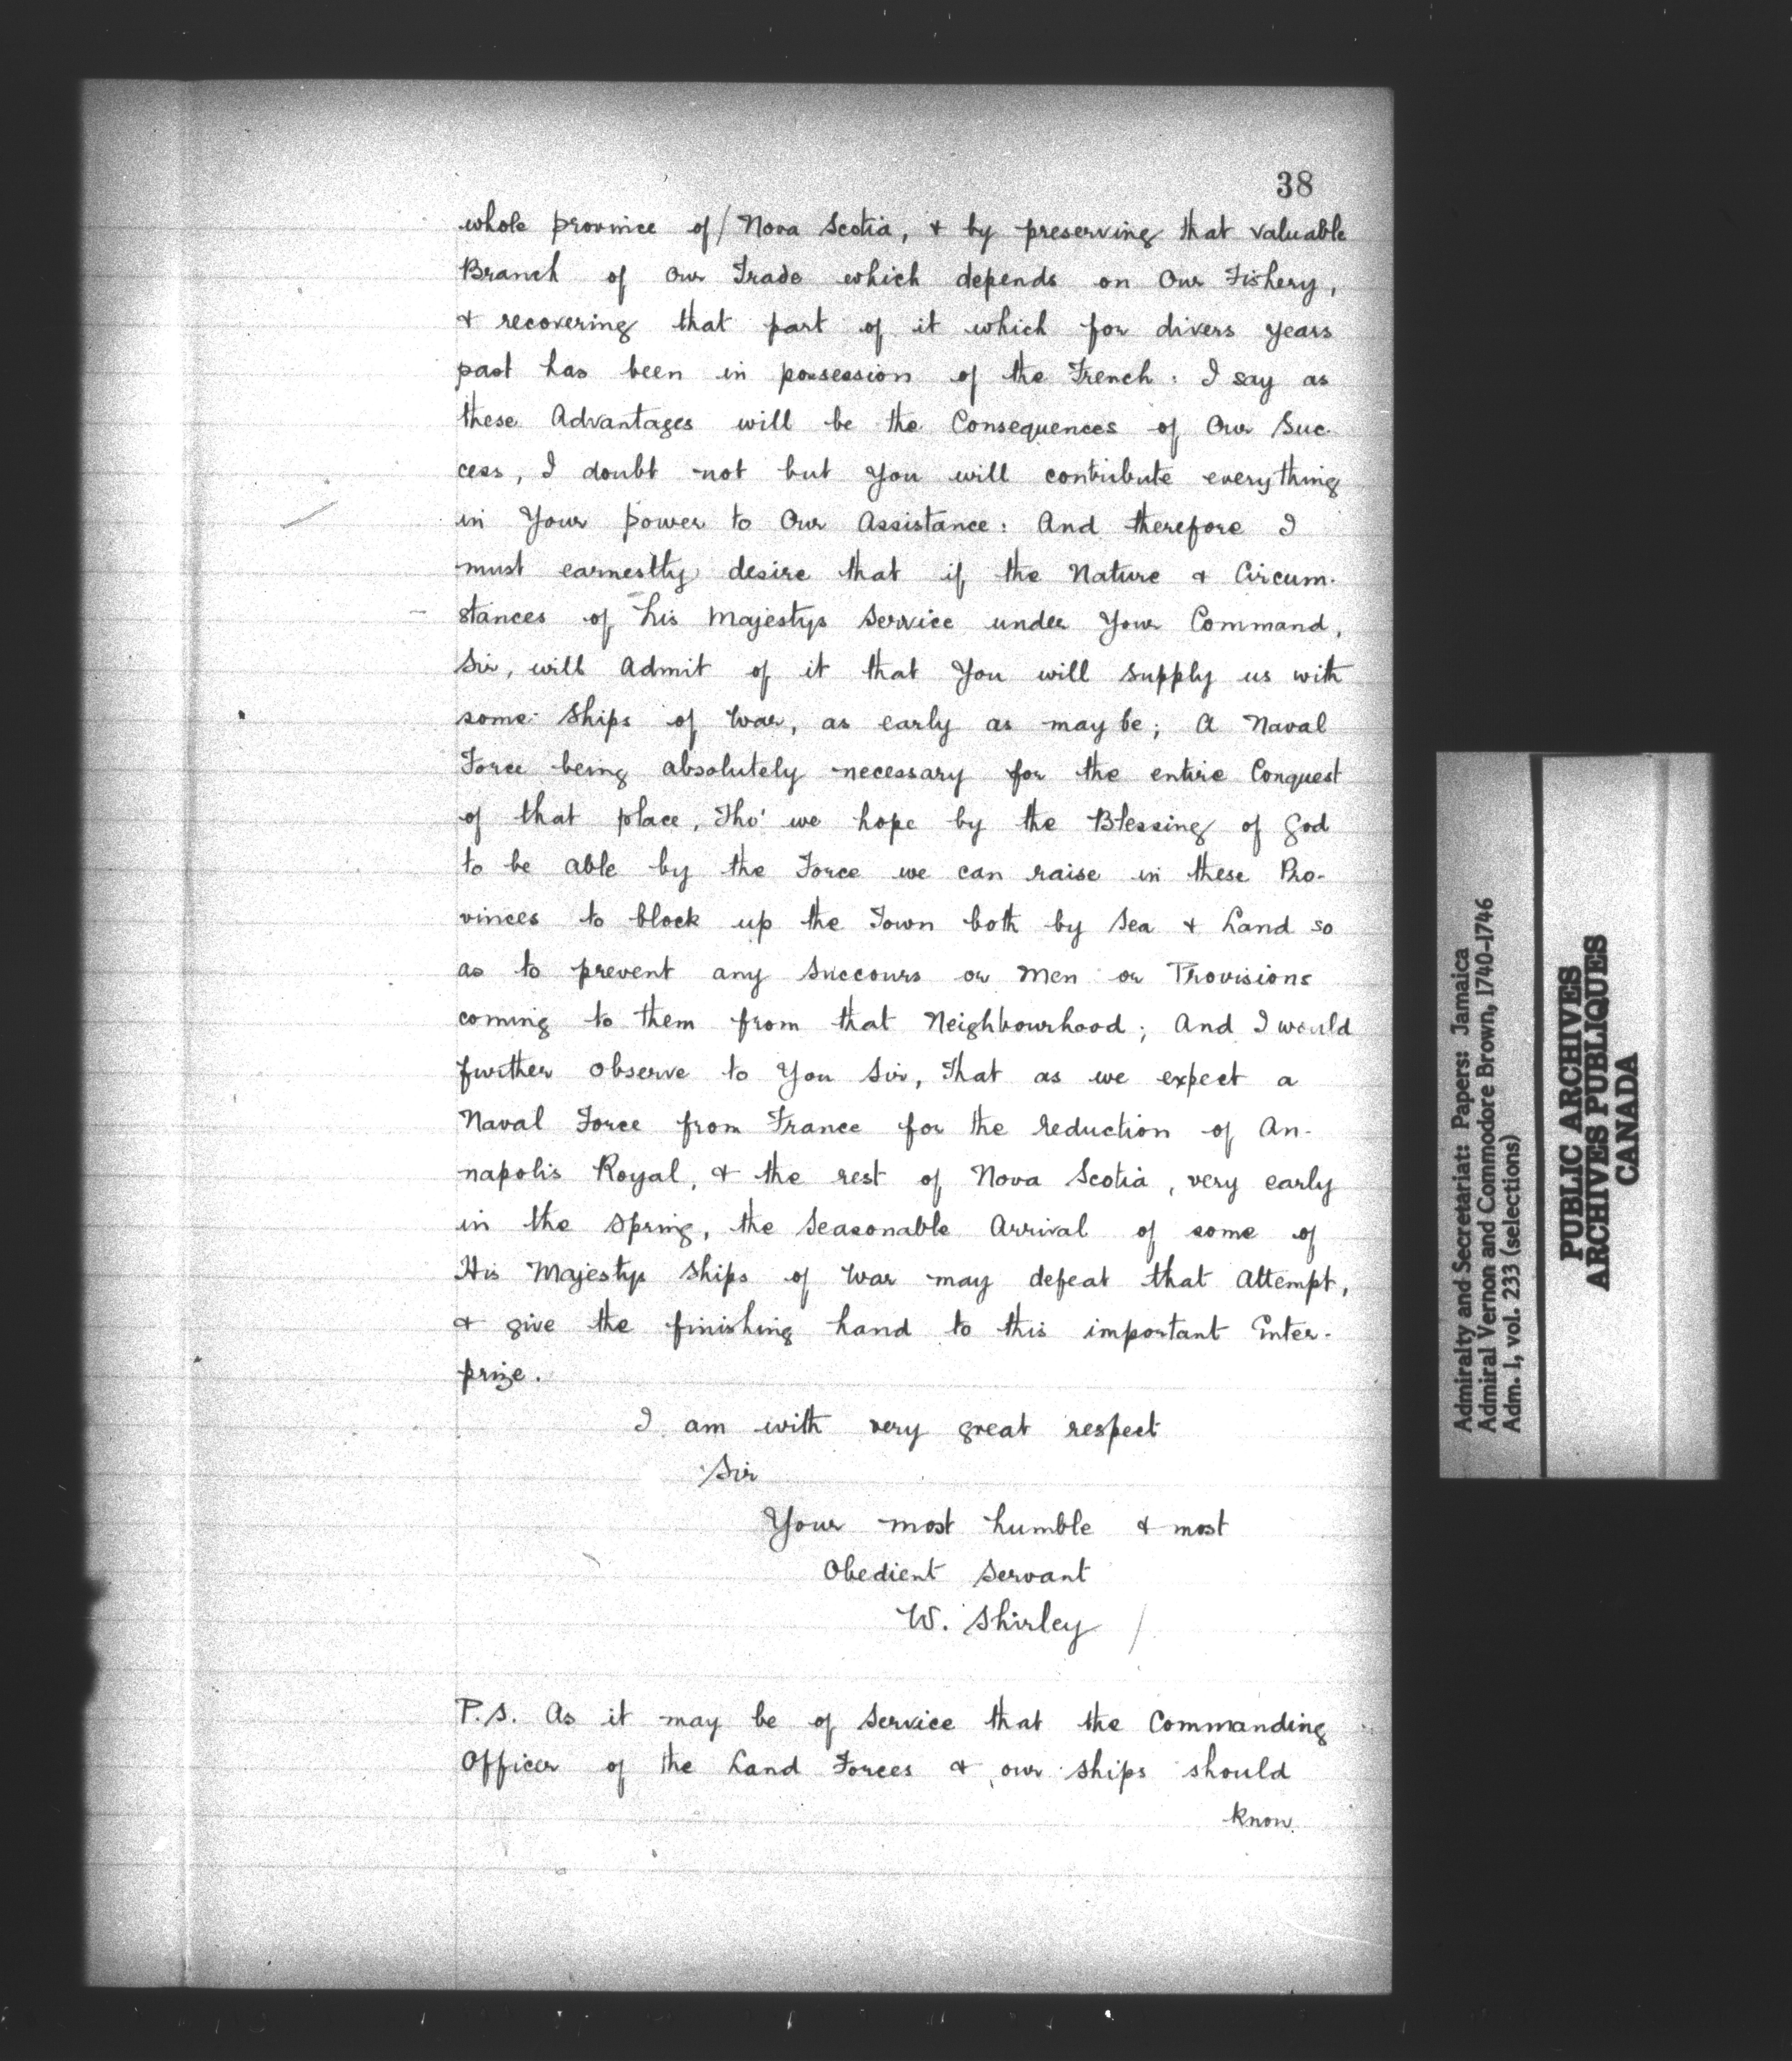 38
whole province of/ Nova Scotia, & by preserving that valuable
Branch of our Trade which depends on Our Fishery,
& recovering that part of it which for divers years
past has been in possession of the French: I say as
these Advantages will be the Consequences of Our Suc-
cess, I doubt not but You will contribute everything
in Your power to Our Assistance: And therefore I
must earnestly desire that if the Nature & Circum-
stances of his Majestys Service under Your Command,
Sir, will Admit of it that You will supply us with
some Ships of War, as early as may be; A Naval
Force being absolutely necessary for the entire Conquest
of that place, Tho' we hope by the Blessing of God
to be able by the Force we can raise in these Pro-
vinces to block up the Town both by Sea & Land so
as to prevent any Succours or Men or Provisions
coming to them from that Neighbourhood; And I would
further Observe to You Sir, That as we expect a
Naval Force from France for the reduction of An-
napolis Royal, & the rest of Nova Scotia, very early
in the Spring, the Seasonable Arrival of some of
His Majestys Ships of War may defeat that Attempt,
& give the finishing hand to this important Enter-
prize.
I am with very great respect
Sir
Your most humble & most
Obedient Servant
W. Shirley /
P.S. As it may be of Service that the Commanding
Officer of the Land Forces & our Ships should
know
Admiralty and Secretariat: Papers: Jamaica
Admiral Vernon and Commodore Brown, 1740-1746
Adm. 1, vol. 233 (selections)
PUBLIC ARCHIVES
ARCHIVES PUBLIQUES
CANADA